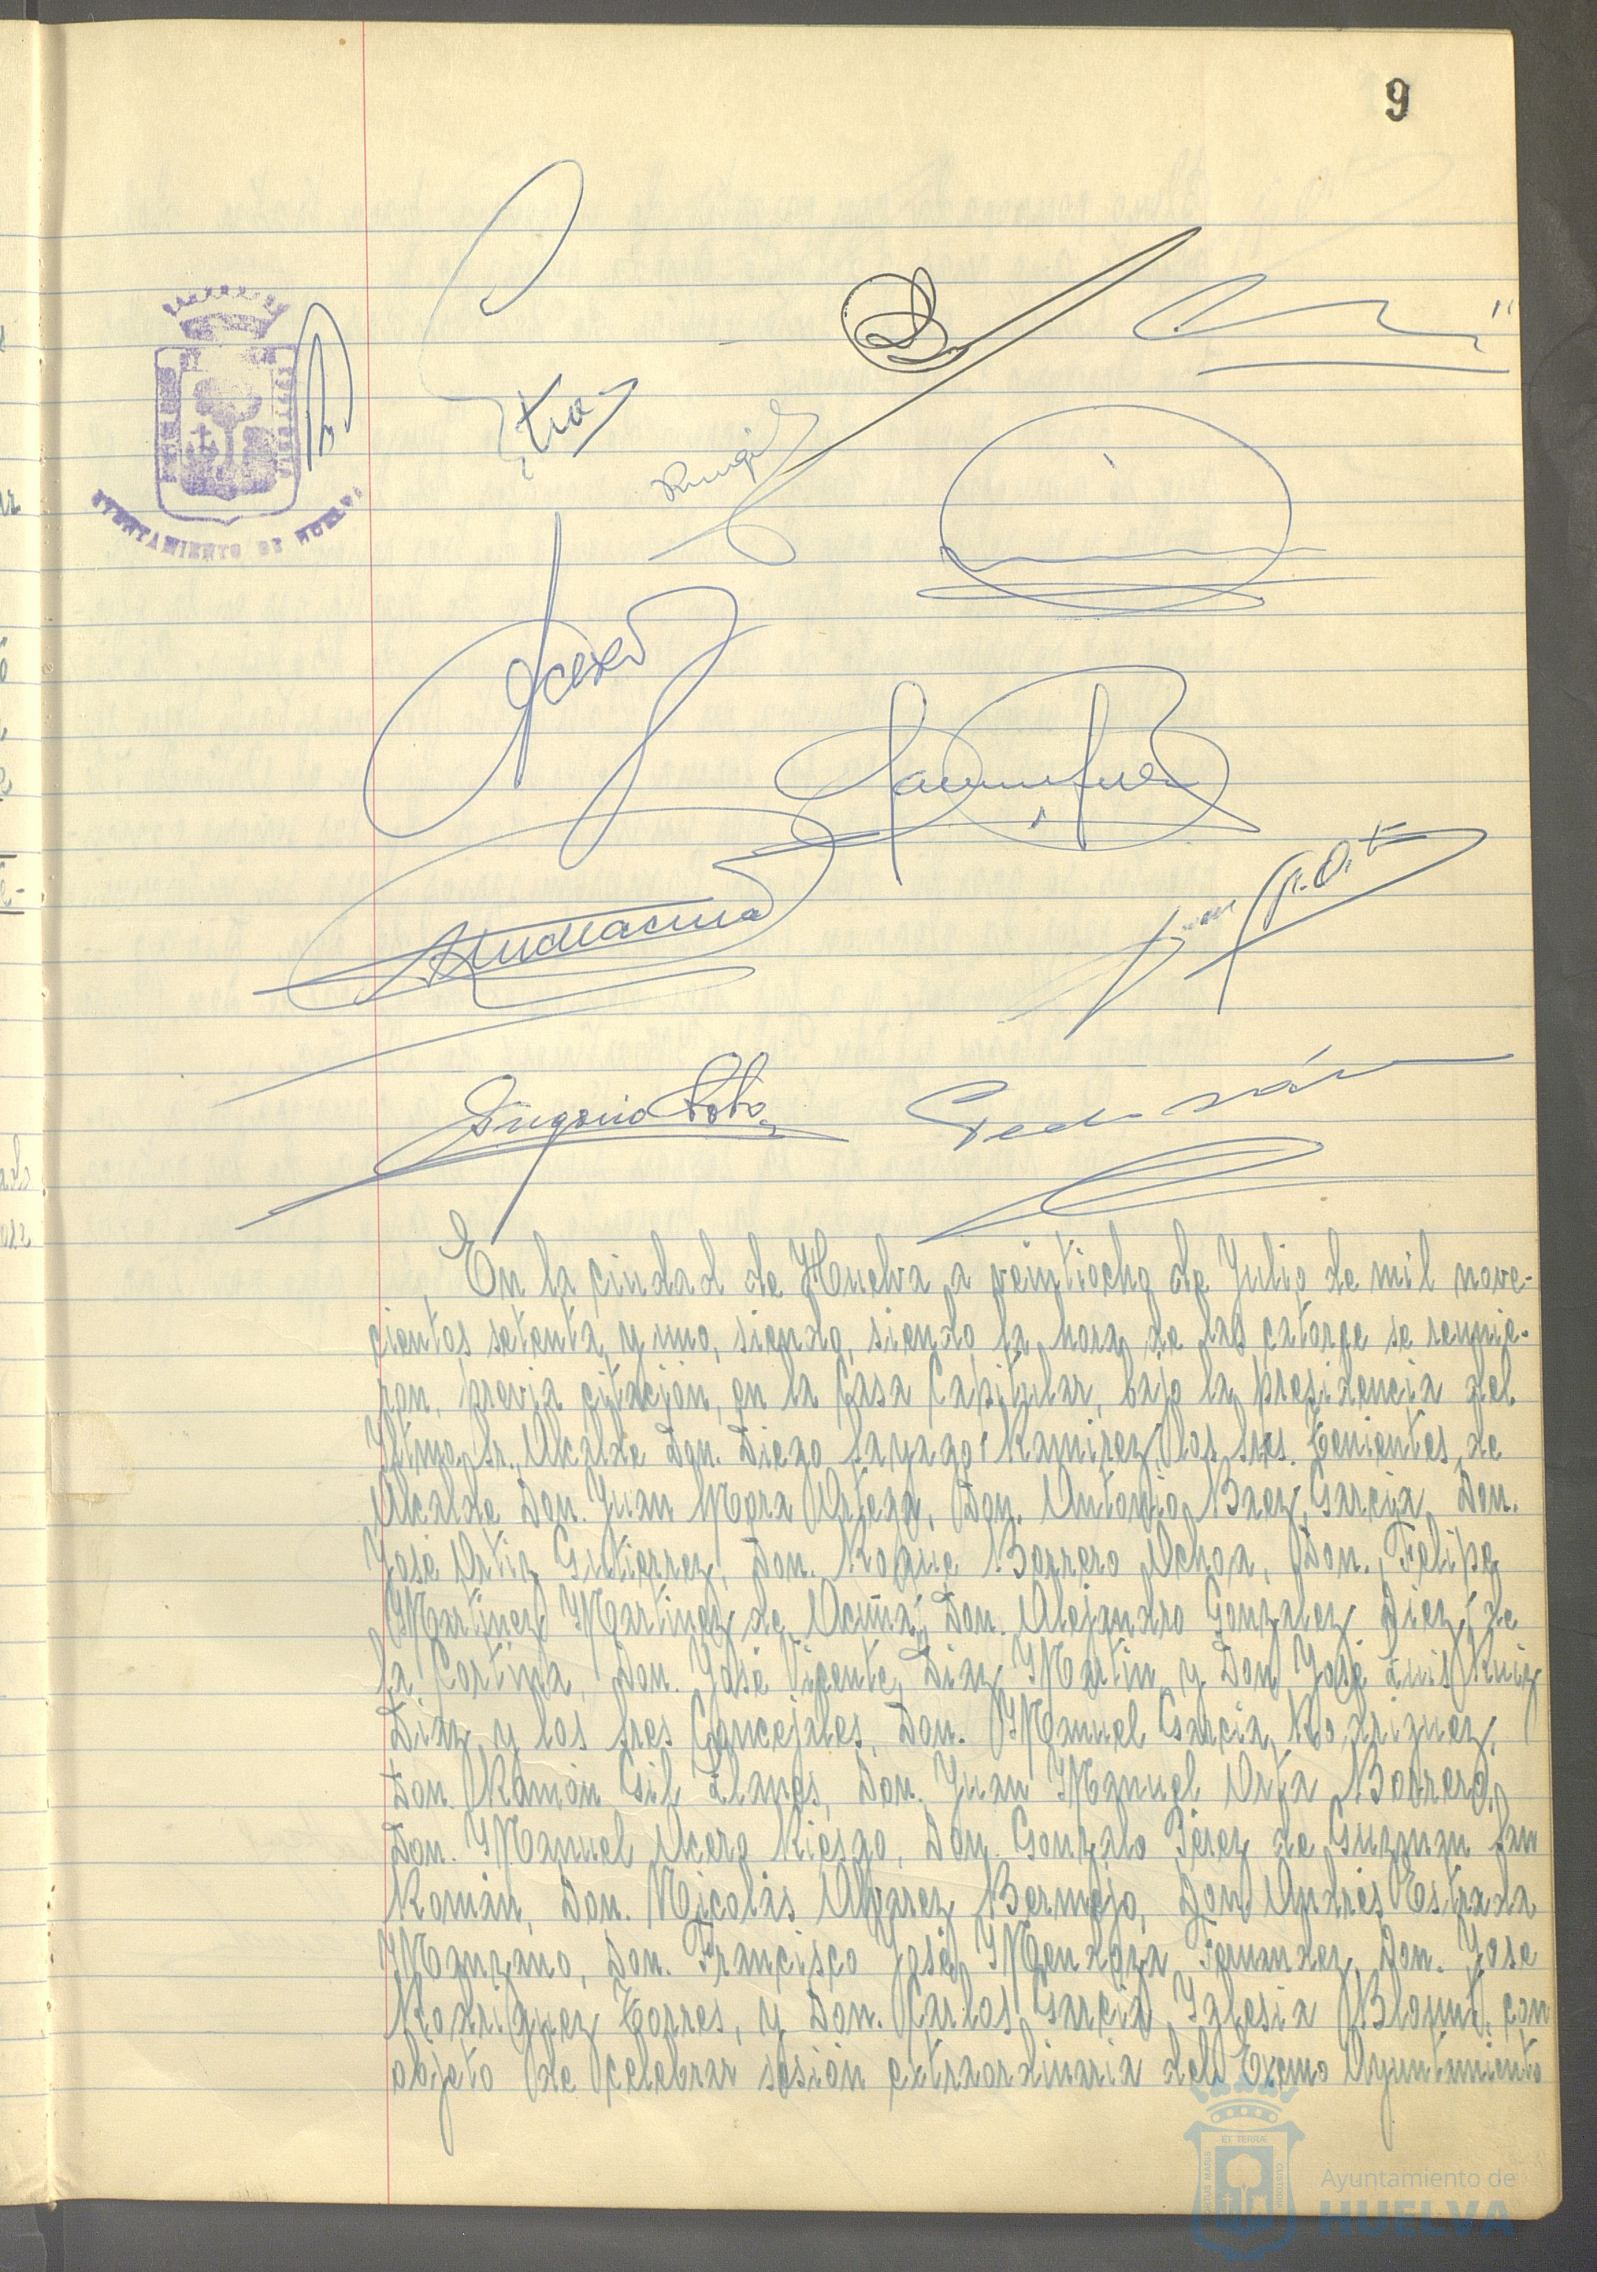 9
AYUNTAMIENTO DE HUELVA
Eugenio
En la ciudad de Huelva a veintiocho de Julio de mil nove-
cientos setenta y uno, siendo, siendo la hora de las catorce se reunie-
ron, previa citación, en la Casa Capitular, bajo la presidencia del
Iltmo. Sr. Alcalde Don. Diego Sayago Ramirez, los Sres. Tenientes de
Alcalde Don. Juan Mora Ortega, Don. Antonio Baez Garcia, Don.
José Ortiz Gutierrez, Don. Roque Borrero Ochoa, Don. Felipe
Martinez Martinez de Acuña, Don. Alejandro Gonzalez Diez de
la Cortina, Don. José Vicente Diaz Martin y Don José Luis Ruiz
Diaz y los Sres Concejales, Don. Manuel Garcia Rodriguez,
Don. Ramón Gil Llanes, Don. Juan Manuel Orta Borrero,
Don. Manuel Acero Riesgo, Don. Gonzalo Pérez de Guzman San
Román, Don. Nicolás Alvarez Bermejo, Don Andrés Estrada
Manzano, Don. Francisco José Mendoza Fernandez, Don. José
Rodriguez Torres, y Don. Carlos Garcia Iglesia Blount, con
objeto de celebrar sesión extraordinaria del Excmo Ayuntamiento
Ayuntamiento de
HUELVA